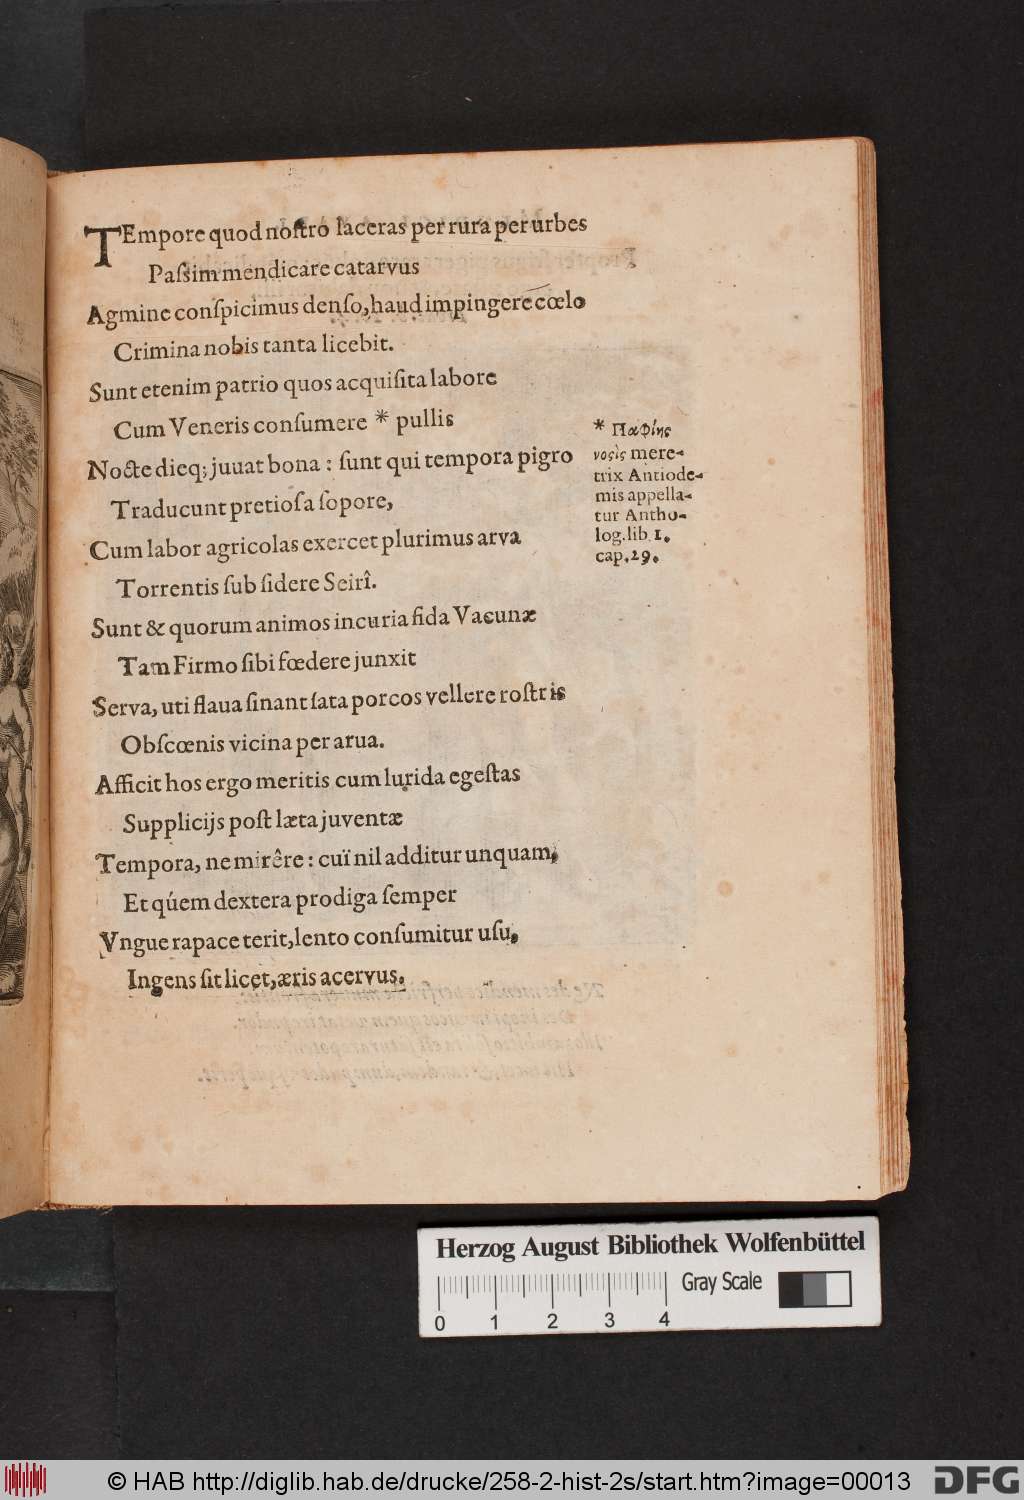 TEmpore quod noſtro laceras per rura per urbes
Paſsim mendicare catarvus
Agmine conſpicimus denſo, haud impingere cœlo
Crimina nobis tanta licebit.
Sunt etenim patrio quos acquiſita labore
Cum Veneris conſumere * pullis
Nocte dieq; juuat bona : ſunt qui tempora pigro
Traducunt pretioſa ſopore,
Cum labor agricolas exercet plurimus arva
Torrentis ſub ſidere Seirî.
Sunt & quorum animos incuria fida Vacunæ
Tam Firmo ſibi fœdere junxit
Serva, uti flaua ſinant ſata porcos vellere roſtris
Obſcœnis vicina per arua.
Afficit hos ergo meritis cum lurida egeſtas
Supplicijs poſt læta juventæ
Tempora, ne mirêre : cuï nil additur unquam,
Et qúem dextera prodiga ſemper
Vngue rapace terit, lento conſumitur uſu,
Ingens ſit licet, æris acervus.
* Παφίης
νοςὶς mere-
trix Antiode-
mis appella-
tur Antho-
log. lib 1.
cap. 29.
Herzog August Bibliothek Wolfenbüttel
Gray Scale
0 1 2 3 4
© HAB http://diglib.hab.de/drucke/258-2-hist-2s/start.htm?image=00013
DFG